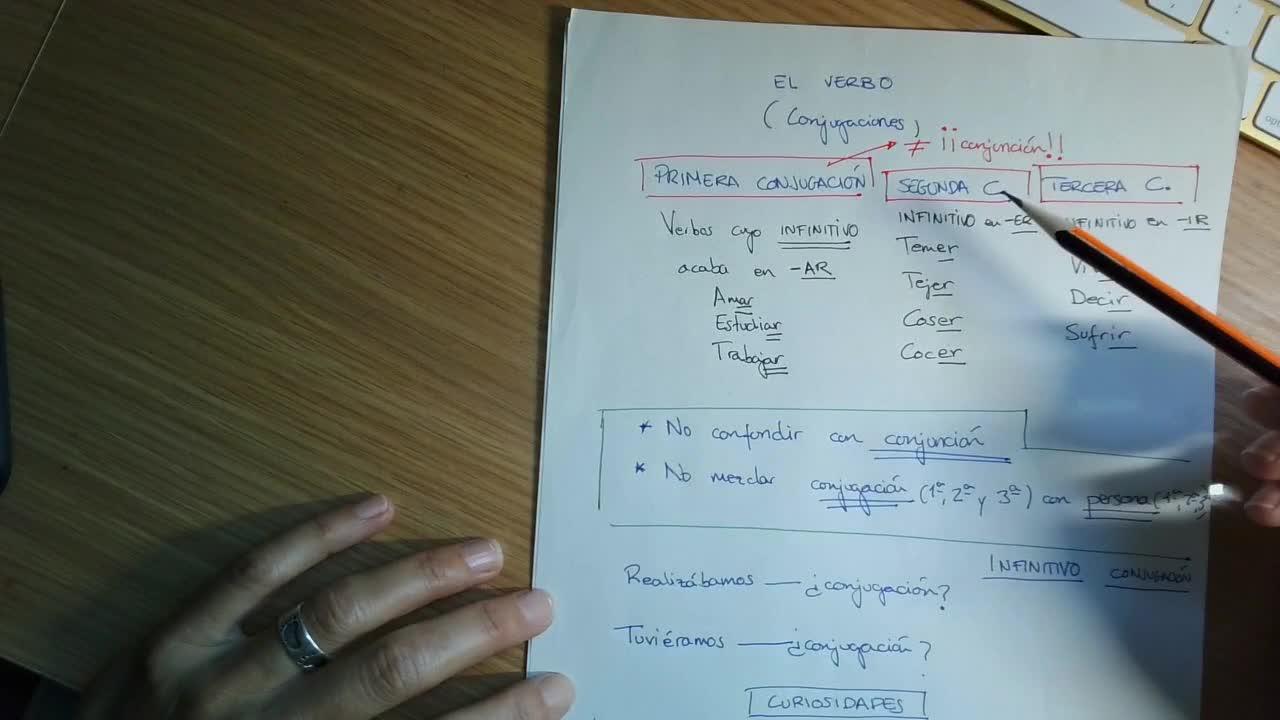 EL VERBO
(Conjugaciones)
≠ ¡¡conjunción!!
PRIMERA CONJUGACIÓN
Verbos cuyo INFINITIVO
acaba en -AR
Amar
Estudiar
Trabajar
SEGUNDA C.
INFINITIVO en -ER
Temer
Tejer
Coser
Cocer
TERCERA C.
INFINITIVO en -IR
Decir
Sufrir
* No confundir con conjunción
* No mezclar conjugación (1ª, 2ª y 3ª) con persona (1ª, 2ª, 3ª
INFINITIVO CONJUGACIÓN
Realizábamos — ¿conjugación?
Tuviéramos — ¿conjugación?
CURIOSIDADES